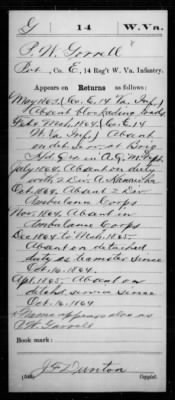 G | 14 | W. Va.
P. W. Gorrell
Pvt, Co. E, 14 Reg't W. Va. Infantry.
Appears on Returns as follows:
May 1863 (Co. E. 14 Va. Inf.)
Absent
Feb. & Mch. 1864 (Co. E. 14
W. Va. Inf.) Absent
on det. serv. at Brig
Hd. Q
July 1864 Absent on duty
with 2 Div. A.
Oct. 1864, Absent 2 Div.
Ambulance Corps
Nov. 1864 Absent in
Ambulance Corps
Dec 1864 to Mch. 1865
Absent on detached
duty as teamster since
Oct. 16. 1864.
Apl. 1865 Absent on
detchd. service since
Oct. 16. 1864
Name appears also as
P. W. Garrell
Book mark:
Dunton
Copyist.